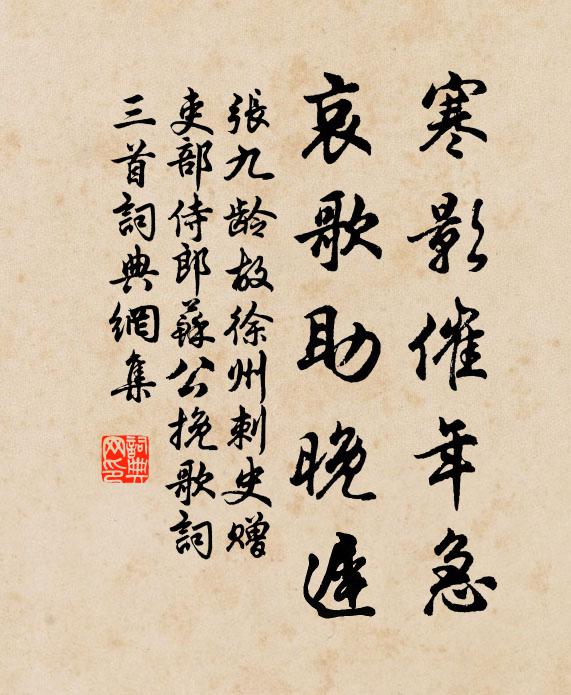 寒影催年急
哀歌助晚遲
張九齡故徐州刺史赠
吏部侍郎蘇公挽歌詞
三首詞典網集
詞典网印